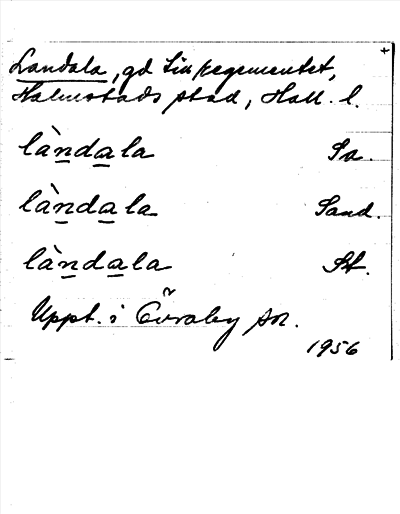 +
Landala, gd
Halmstads stad, Hall. l.
làndala Sa.
làndala Sand.
làndala St.
Uppt. i Övraby sn.
1956